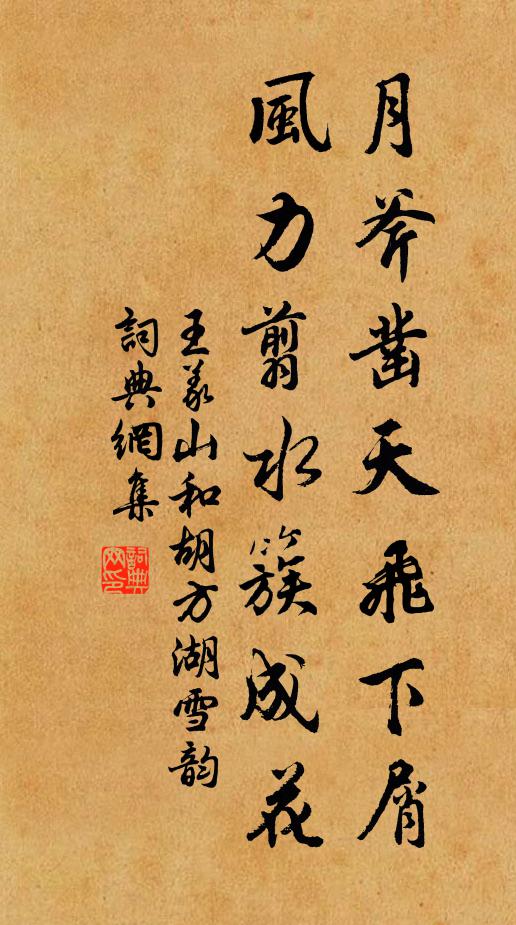 月斧鑿天飛下屑
風力翦水簇成花
王義山和胡方湖雪韵
詞典網集
詞典網印